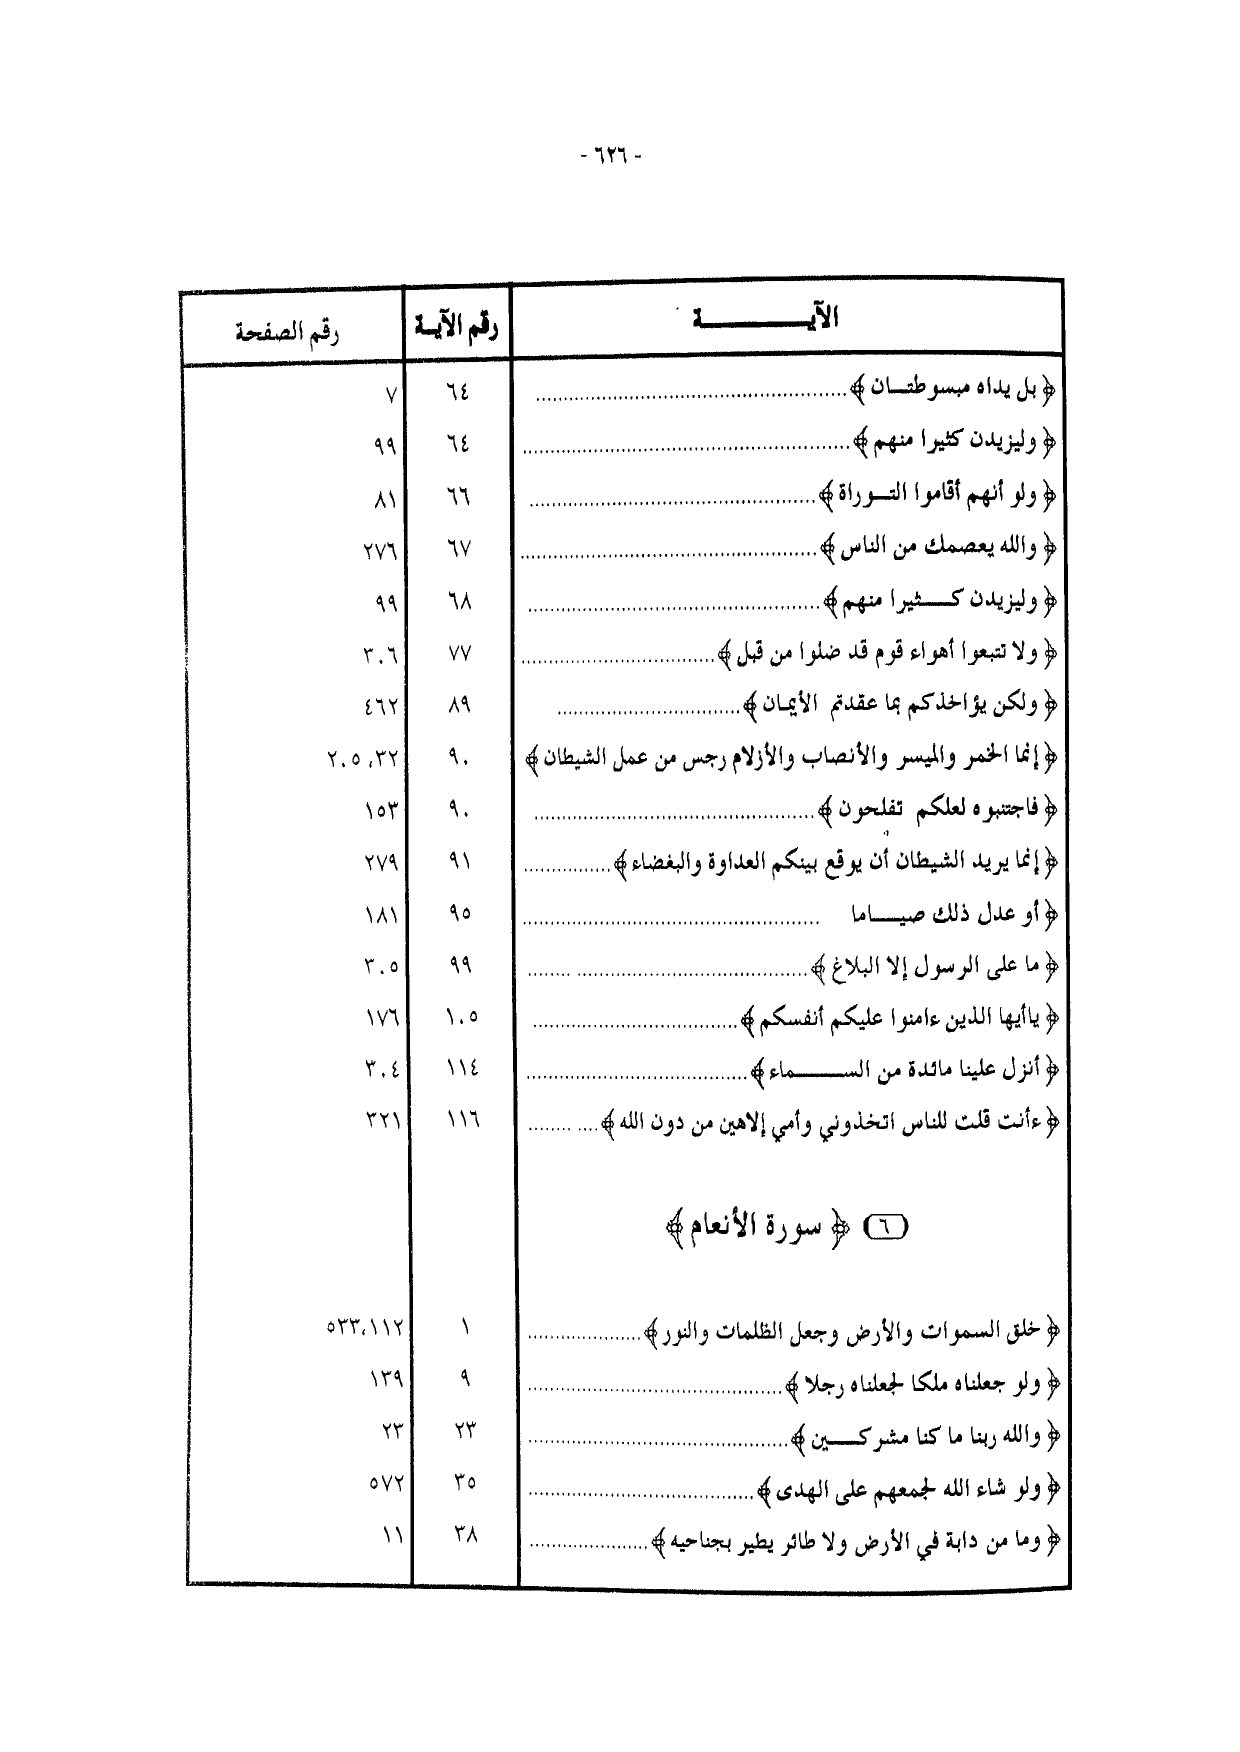 - ٦٢٦ -
الآيـــــــــة رقم الآيـة رقم الصفحة
﴿ بل يداه مبسوطتـــان ﴾ ................ ٦٤ ٧
﴿ وليزيدن كثيرا منهم ﴾ ................ ٦٤ ٩٩
﴿ ولو أنهم أقاموا التـــوراة ﴾ ................ ٦٦ ٨١
﴿ والله يعصمك من الناس ﴾ ................ ٦٧ ٢٧٦
﴿ وليزيدن كـــــثيرا منهم ﴾ ................ ٦٨ ٩٩
﴿ ولا تتبعوا أهواء قوم قد ضلوا من قبل ﴾ ................ ٧٧ ٣٠٦
﴿ ولكن يؤاخذكم بما عقدتم الأيمـان ﴾ ................ ٨٩ ٤٦٢
﴿ إنما الخمر والميسر والأنصاب والأزلام رجس من عمل الشيطان ﴾ ٩٠ ٢٠٥،٣٢
﴿ فاجتنبوه لعلكم تفلحون ﴾ ................ ٩٠ ١٥٣
﴿ إنما يريد الشيطان أن يوقع بينكم العداوة والبغضاء ﴾ ................ ٩١ ٢٧٩
﴿ أو عدل ذلك صيـــاما ................ ٩٥ ١٨١
﴿ ما على الرسول إلا البلاغ ﴾ ................ ٩٩ ٣٠٥
﴿ ياأيها الذين ءامنوا عليكم أنفسكم ﴾ ................ ١٠٥ ١٧٦
﴿ أنزل علينا مائدة من الســـــــماء ﴾ ................ ١١٤ ٣٠٤
﴿ ءأنت قلت للناس اتخذوني وأمي إلاهين من دون الله ﴾ ............ ١١٦ ٣٢١
(٦) ﴿ سورة الأنعام ﴾
﴿ خلق السموات والأرض وجعل الظلمات والنور ﴾ ................ ١ ٥٣٣،١١٢
﴿ ولو جعلناه ملكا لجعلناه رجلا ﴾ ................ ٩ ١٣٩
﴿ والله ربنا ما كنا مشركـــــين ﴾ ................ ٢٣ ٢٣
﴿ ولو شاء الله لجمعهم على الهدى ﴾ ................ ٣٥ ٥٧٢
﴿ وما من دابة في الأرض ولا طائر يطير بجناحيه ﴾ ................ ٣٨ ١١